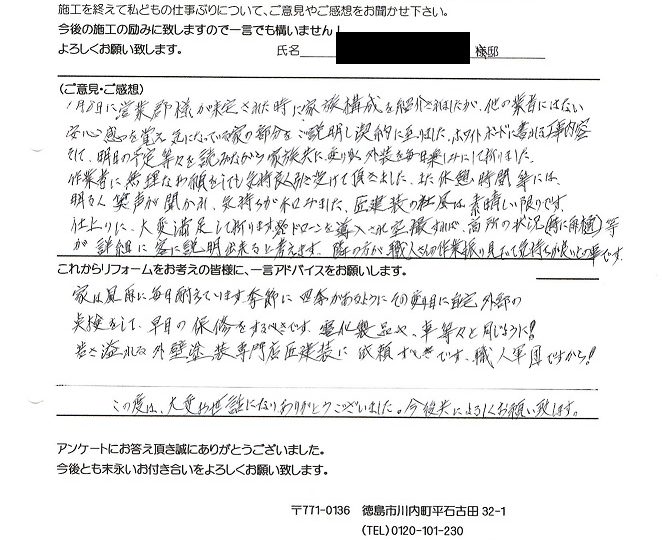 施工を終えて私どもの仕事ぶりについて、ご意見やご感想をお聞かせ下さい。
今後の施工の励みに致しますので一言でも構いません！
よろしくお願い致します。 氏名 様邸
(ご意見・ご感想)
1月8日に営業部様が来宅された時に家族構成を紹介されましたが、他の業者にはない
安心感を覚え気になっている家の部分をご説明し契約に至りました。ホワイトボードに書かれる工事内容
そして、明日の予定等々を読みながら家族共に
外装を毎日楽しみにして折りました。
作業者に無理なお願をしても気持良く引き受けて頂きました、また休憩時間等には、
明るく笑声が聞かれ、気持ちが和みました、匠建装の社風は素晴しい限りです。
仕上りに、大変満足して折ります
ドローンを導入され空撮すれば、高所の状況(特に屋根)等
が詳細に客に説明出来ると考えます。隣の方が職人さんの作業振り見ていて気持ちが良いとの事です。
これからリフォームをお考えの皆様に、一言アドバイスをお願いします。
家は風雨に毎日耐えています季節に四季があるように
自宅外部の
点検をして、早目の保修をするべきです。電化製品や、車等々と同じように！
若さ溢れる外壁塗装専門店匠建装に依頼すべきです、職人軍団ですから！
この度は、大変お世話になりありがとうございました。今後共によろしくお願い致します。
アンケートにお答え頂き誠にありがとうございました。
今後とも末永いお付き合いをよろしくお願い致します。
〒771-0136 徳島市川内町平石古田 32-1
(TEL) 0120-101-230